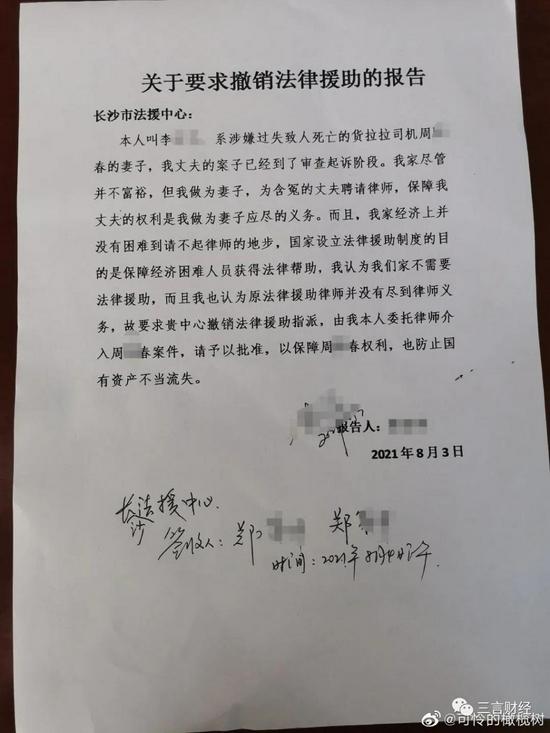 关于要求撤销法律援助的报告
长沙市法援中心:
本人叫李 系涉嫌过失致人死亡的货拉拉司机周
春的妻子，我丈夫的案子已经到了审查起诉阶段。我家尽管
并不富裕，但我做为妻子，为含冤的丈夫聘请律师，保障我
丈夫的权利是我做为妻子应尽的义务。而且，我家经济上并
没有困难到请不起律师的地步，国家设立法律援助制度的目
的是保障经济困难人员获得法律帮助，我认为我们家不需要
法律援助，而且我也认为原法律援助律师并没有尽到律师义
务，故要求贵中心撤销法律援助指派，由我本人委托律师介
入周 春案件，请予以批准，以保障周 春权利，也防止国
有资产不当流失。
报告人：
2021年8月3日
长沙法援中心
签收人：郑 郑
时间：2021年8月4日下午
三言财经
@可怜的橄榄树